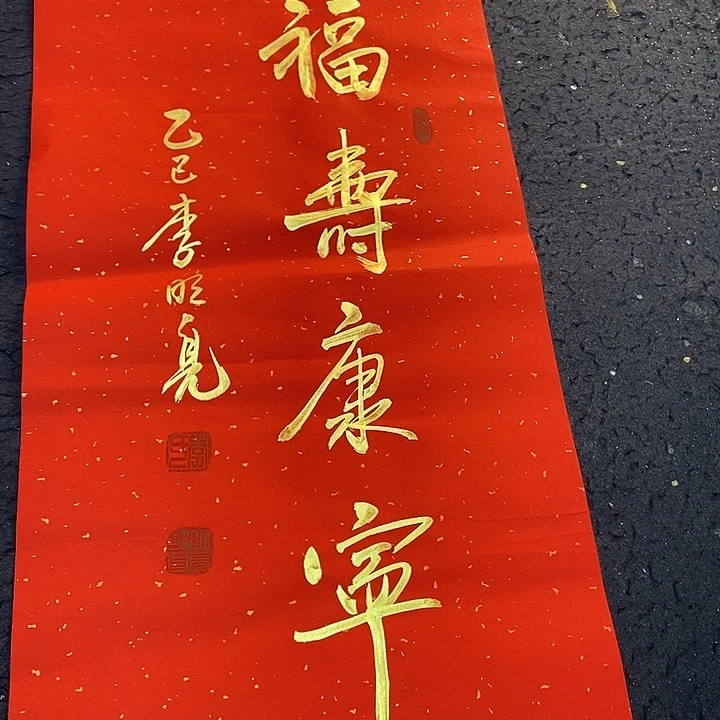 福寿康寧
乙巳李明亮